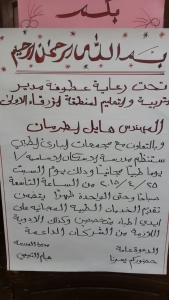 بسم الله الرحمن الرحيم
تحت رعاية عطوفة مدير
التربية والتعليم لمنطقة الزرقاء الأولى
المهندس هايل
وبالتعاون مع مجمعات الطبي
ستنظم مدرسة
يوما طبيا مجانيا وذلك يوم السبت
٢٠١٥/٤/٢٥ من الساعة التاسعة
صباحا وحتى الواحدة ظهرا يتضمن
تقديم الخدمات الطبية المجانية على
أيدي أطباء متخصصين وكذلك الأدوية
اللازمة من الشركات الداعمة
الدعوة عامة
حضوركم يسرنا